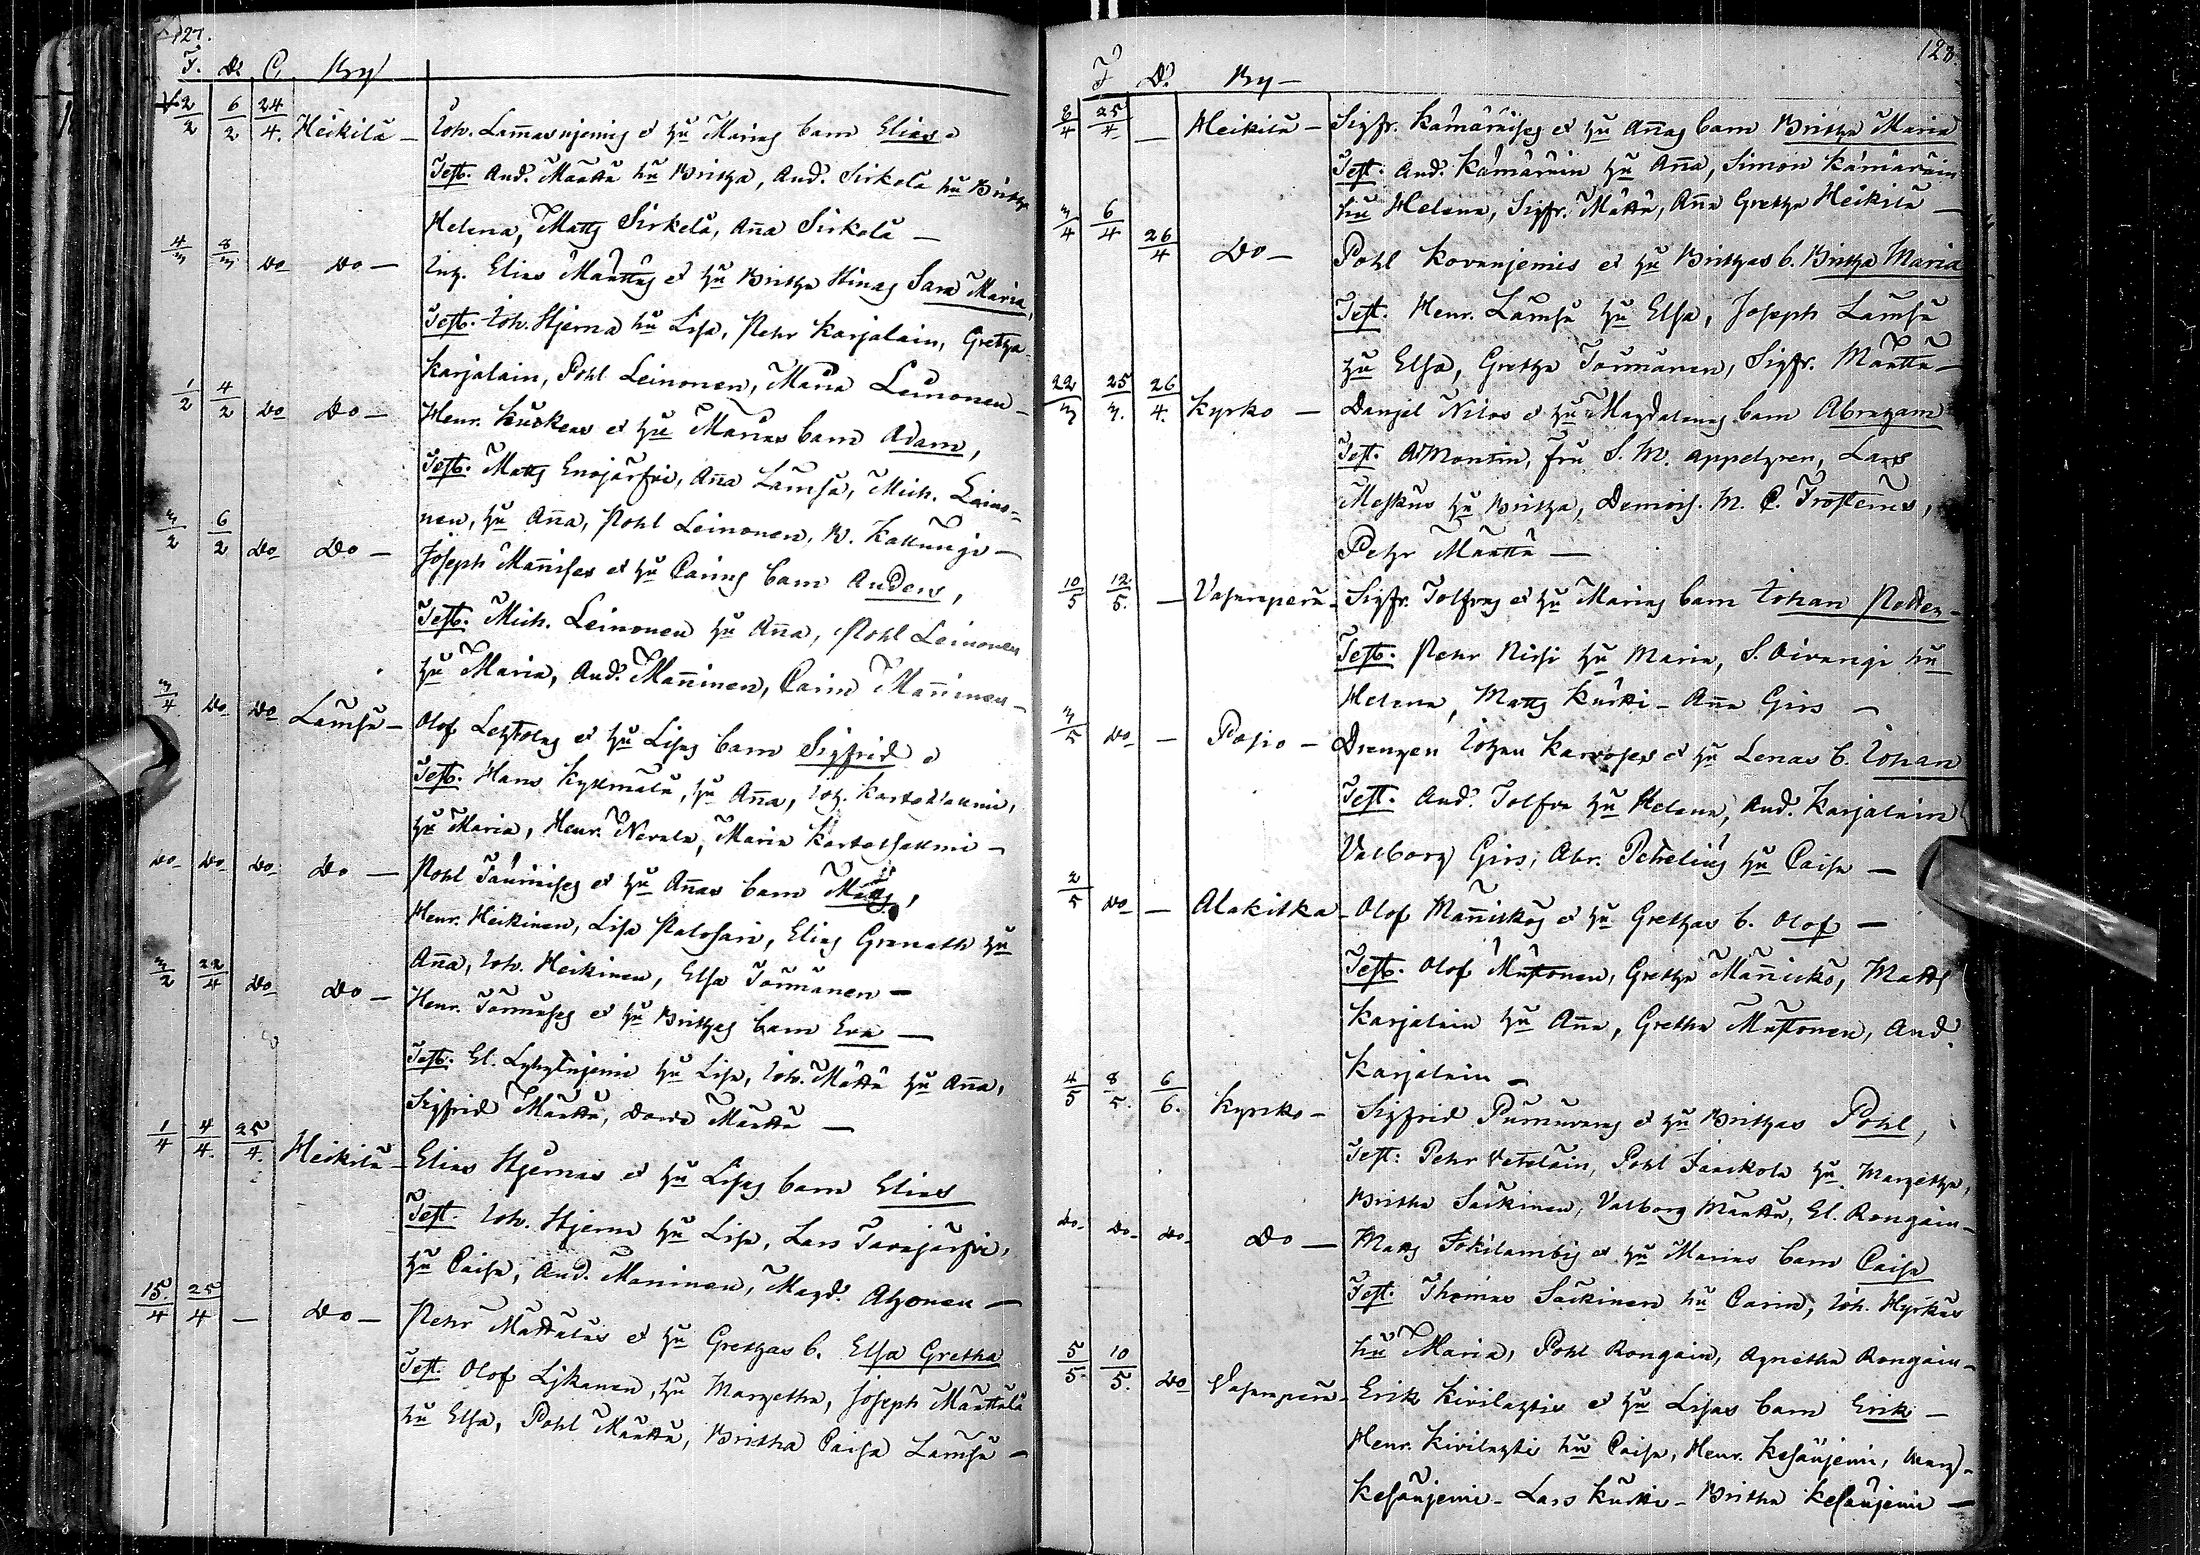 127.
F. D. C. By
2/2 6/2 24/4. Heikilä – Joh. Lämsänjemis et hu Marias barn Elias
Test. And. Määttä hu Britha, And. Sirkelä hu Britha
Helena, Matts Sirkelä, Anna Sirkelä –
4/3 8/3 do Do – Inh. Elias Määttäs et hu Britha Stinas Sara Maria,
Test. Joh. Stjerna hu Lisa, Pehr Karjalain, Gretha
Karjalain, Pohl Leinonen, Maria Leinonen –
1/2 4/2 do Do – Henr. et hu Marias barn Adam,
Test. Matts Enojärfvi, Anna Lämsä, Mich. Leino=
nen, hu Anna, Pohl Leinonen, B. Kallungi –
3/2 6/2 do Do – Joseph Mannises et hu Carins barn Anders,
Test. Mich. Leinonen hu Anna, Pohl Leinonen
hu Maria, And. Manninen, Carin Manninen –
3/4 do do Lämsä – Olof Lehtolas et hu Lisas barn Sigfrid
Test. Hans Kyllmälä, hu Anna, Joh. Karhetsalmi,
hu Maria, Henr. Nevala, Maria
do do do Do – Pohl et hu Annas barn Matts,
Henr. Heikinen, Lisa Palosari, Elias Granath hu
Anna, Joh. Heikinen, Elsa Törmänen –
3/2 22/4 do Do – Henr. Törmäses et hu Brithas barn Eva –
Test. El. hu Lisa, Joh. Määttä hu Anna,
Sigfrid Määttä, Määttä –
1/4 4/4. 25/4. Heikilä – Elias Stjernas et hu Lisas barn Elias
Test. Joh. Stjerna hu Lisa, Lars Tavajärfvi,
hu Caisa, And. Maninen, Magd. Ahonen –
15./4 25/4 – Do – Pehr Mättäläs et hu Grethas b. Elsa Gretha
Test. Olof Lykanen, hu Margetha, Joseph Määttälä
hu Elsa, Pohl Määttä, Britha Caisa Lämsä –
128.
F D. By –
2/4 25/4 – Heikilä – Sigfr. Kämäräises et hu Annas barn Britha Maria
Test. And. Kämäräin hu Anna, Simon Kämäräin
hu Helena, Sigfr. Mättä, Anna Gretha Heikilä –
3/4 6/4 26/4 Do – Pohl Kovanjemis et hu Brithas b. Britha Maria
Test. Henr. Lämsä hu Elsa, Joseph Lämsä
hu Elsa, Gretha Törmänen, Sigfr. Määttä –
22/3 25/3. 26/4. Kyrko – Danjel Nilos et hu Magdalenas barn Abraham
Test. A. Montin, Fru S. M. Appelgren, Lars
Meskus hu Britha, Demois. M. C. Frosterus,
Pehr Määttä –
10/5 12./5. – Vasaraperä – Sigfr. Tolfvas et hu Marias barn Johan Petter –
Test. Pehr Nissi hu Maria, S. Oivangi hu
Helena, Matts Kurtti – Anna Girs –
3/5 do – Posio – Drengen Johan et hu Lenas b. Johan
Test. And. Tolfva hu Helena, And. Karjalain
Valborg Girs, Abr. Petrelius hu Caisa –
2/5 do – Alakitka – Olof Manniskos et hu Grethas b. Olof –
Test. Olof Mustonen, Gretha Manicko, Matts
Karjalain hu Anna, Gretha Mustonen, And.
Karjalain –
4/5 8/5. 6/6. Kyrko – Sigfrid et hu Brithas Pohl,
Test: Pehr Veteläin, Pohl Jaackola hu Margetha,
Britha Säckinen, Valborg Määttä, El. Rongain –
do do do Do – Matts Jokilambis et hu Marias barn Caisa
Test. Thomas Säckinen hu Carin, Joh. Hyrkäs
hu Maria, Pohl Rongain, Agnetha Rongain –
5/5. 10/5. do Vasaraperä – Erik Kivilahtis et hu Lisas barn Erik –
Henr. Kivilahti hu Caisa, Henr. Kesänjemi, Marg.
Kesänjemi – Lars Kurtti – Britha Kesänjemi –